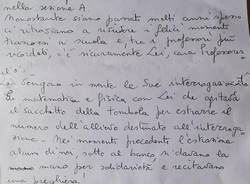 nella sezione A.
Nonostante siano passati molti anni spesso
ci ritroviamo a rivivere i felici momenti
trascorsi a scuola e, tra i professori più
ricordati, c'è sicuramente Lei, cara Professoressa
vengono in mente le sue interrogazioni
di matematica e fisica con Lei che agitava
il sacchetto della tombola per estrarre il
numero dell'allievo destinato all'interroga-
zione. Nei momenti precedenti l'estrazione
alcuni di noi, sotto al banco si davano la
mano per solidarietà e recitavano
una preghiera